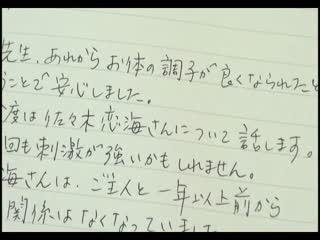 先生、あれからお体の調子が良くなられたと
うことで安心しました。
度は佐々木恋海さんについて話します。
回も刺激が強いかもしれません。
海さんは、ご主人と一年以上前から
関係はなくなっていました